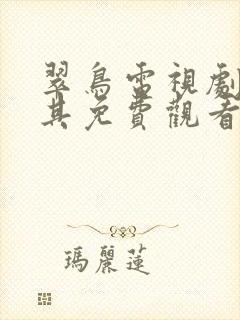 翠鳥電視劇
其免費觀看
瑪麗蓮